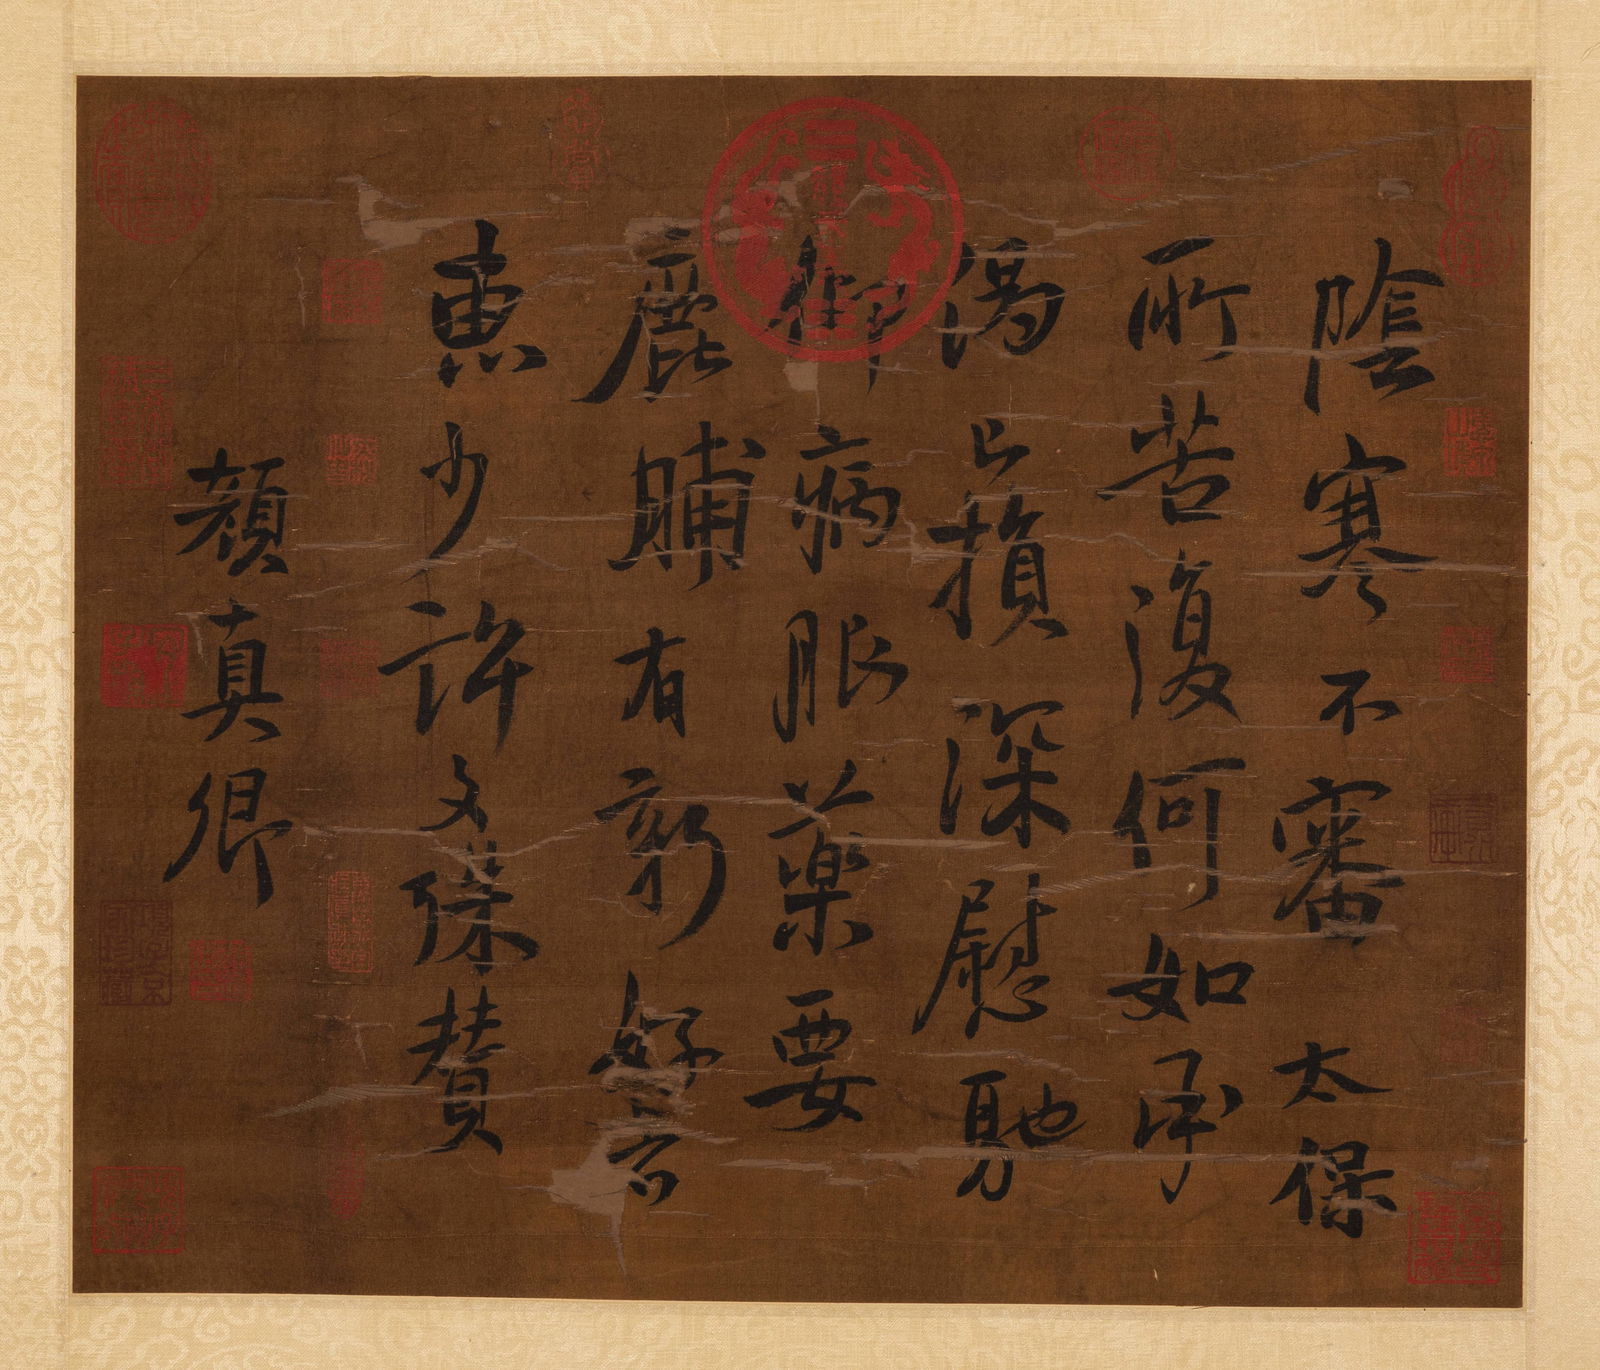 陰寒不審太保
所苦復何如承
渴已損深慰馳
病服藥要
鹿脯有新好者
惠少許文
顏真卿